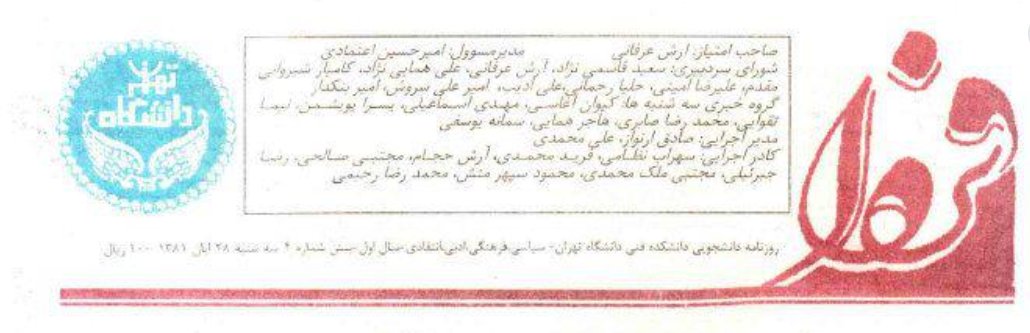 صاحب امتیاز: آرش عرفانی مدیرمسوول: امیرحسین اعتمادی
شورای سردبیری: سعید قاسمی نژاد، آرش عرفانی، علی همایی نژاد، کامیار شیروانی
مقدم، علیرضا امینی، حلیا رحمانی، علی ادیب، امیر علی سروش، امیر بنکدار
گروه خبری سه شنبه ها: کیوان آغاسی، مهدی اسماعیلی، یسرا پویشمن، نیما
تقوایی، محمد رضا صابری، هاجر همایی، سمانه یوسفی
مدیر اجرایی: صادق ارنواز، علی محمدی
کادر اجرایی: سهراب نظامی، فرید محمدی، آرش حجام، مجتبی صالحی، رضا
جبرئیلی، مجتبی ملک محمدی، محمود سپهر منش، محمد رضا رحیمی
روزنامه دانشجویی دانشکده فنی دانشگاه تهران- سیاسی،فرهنگی،ادبی،انتقادی-سال اول-پیش شماره ۴ سه شنبه ۲۸ آبان ۱۳۸۱ ۱۰۰ ریال
دانشگاه
تهران